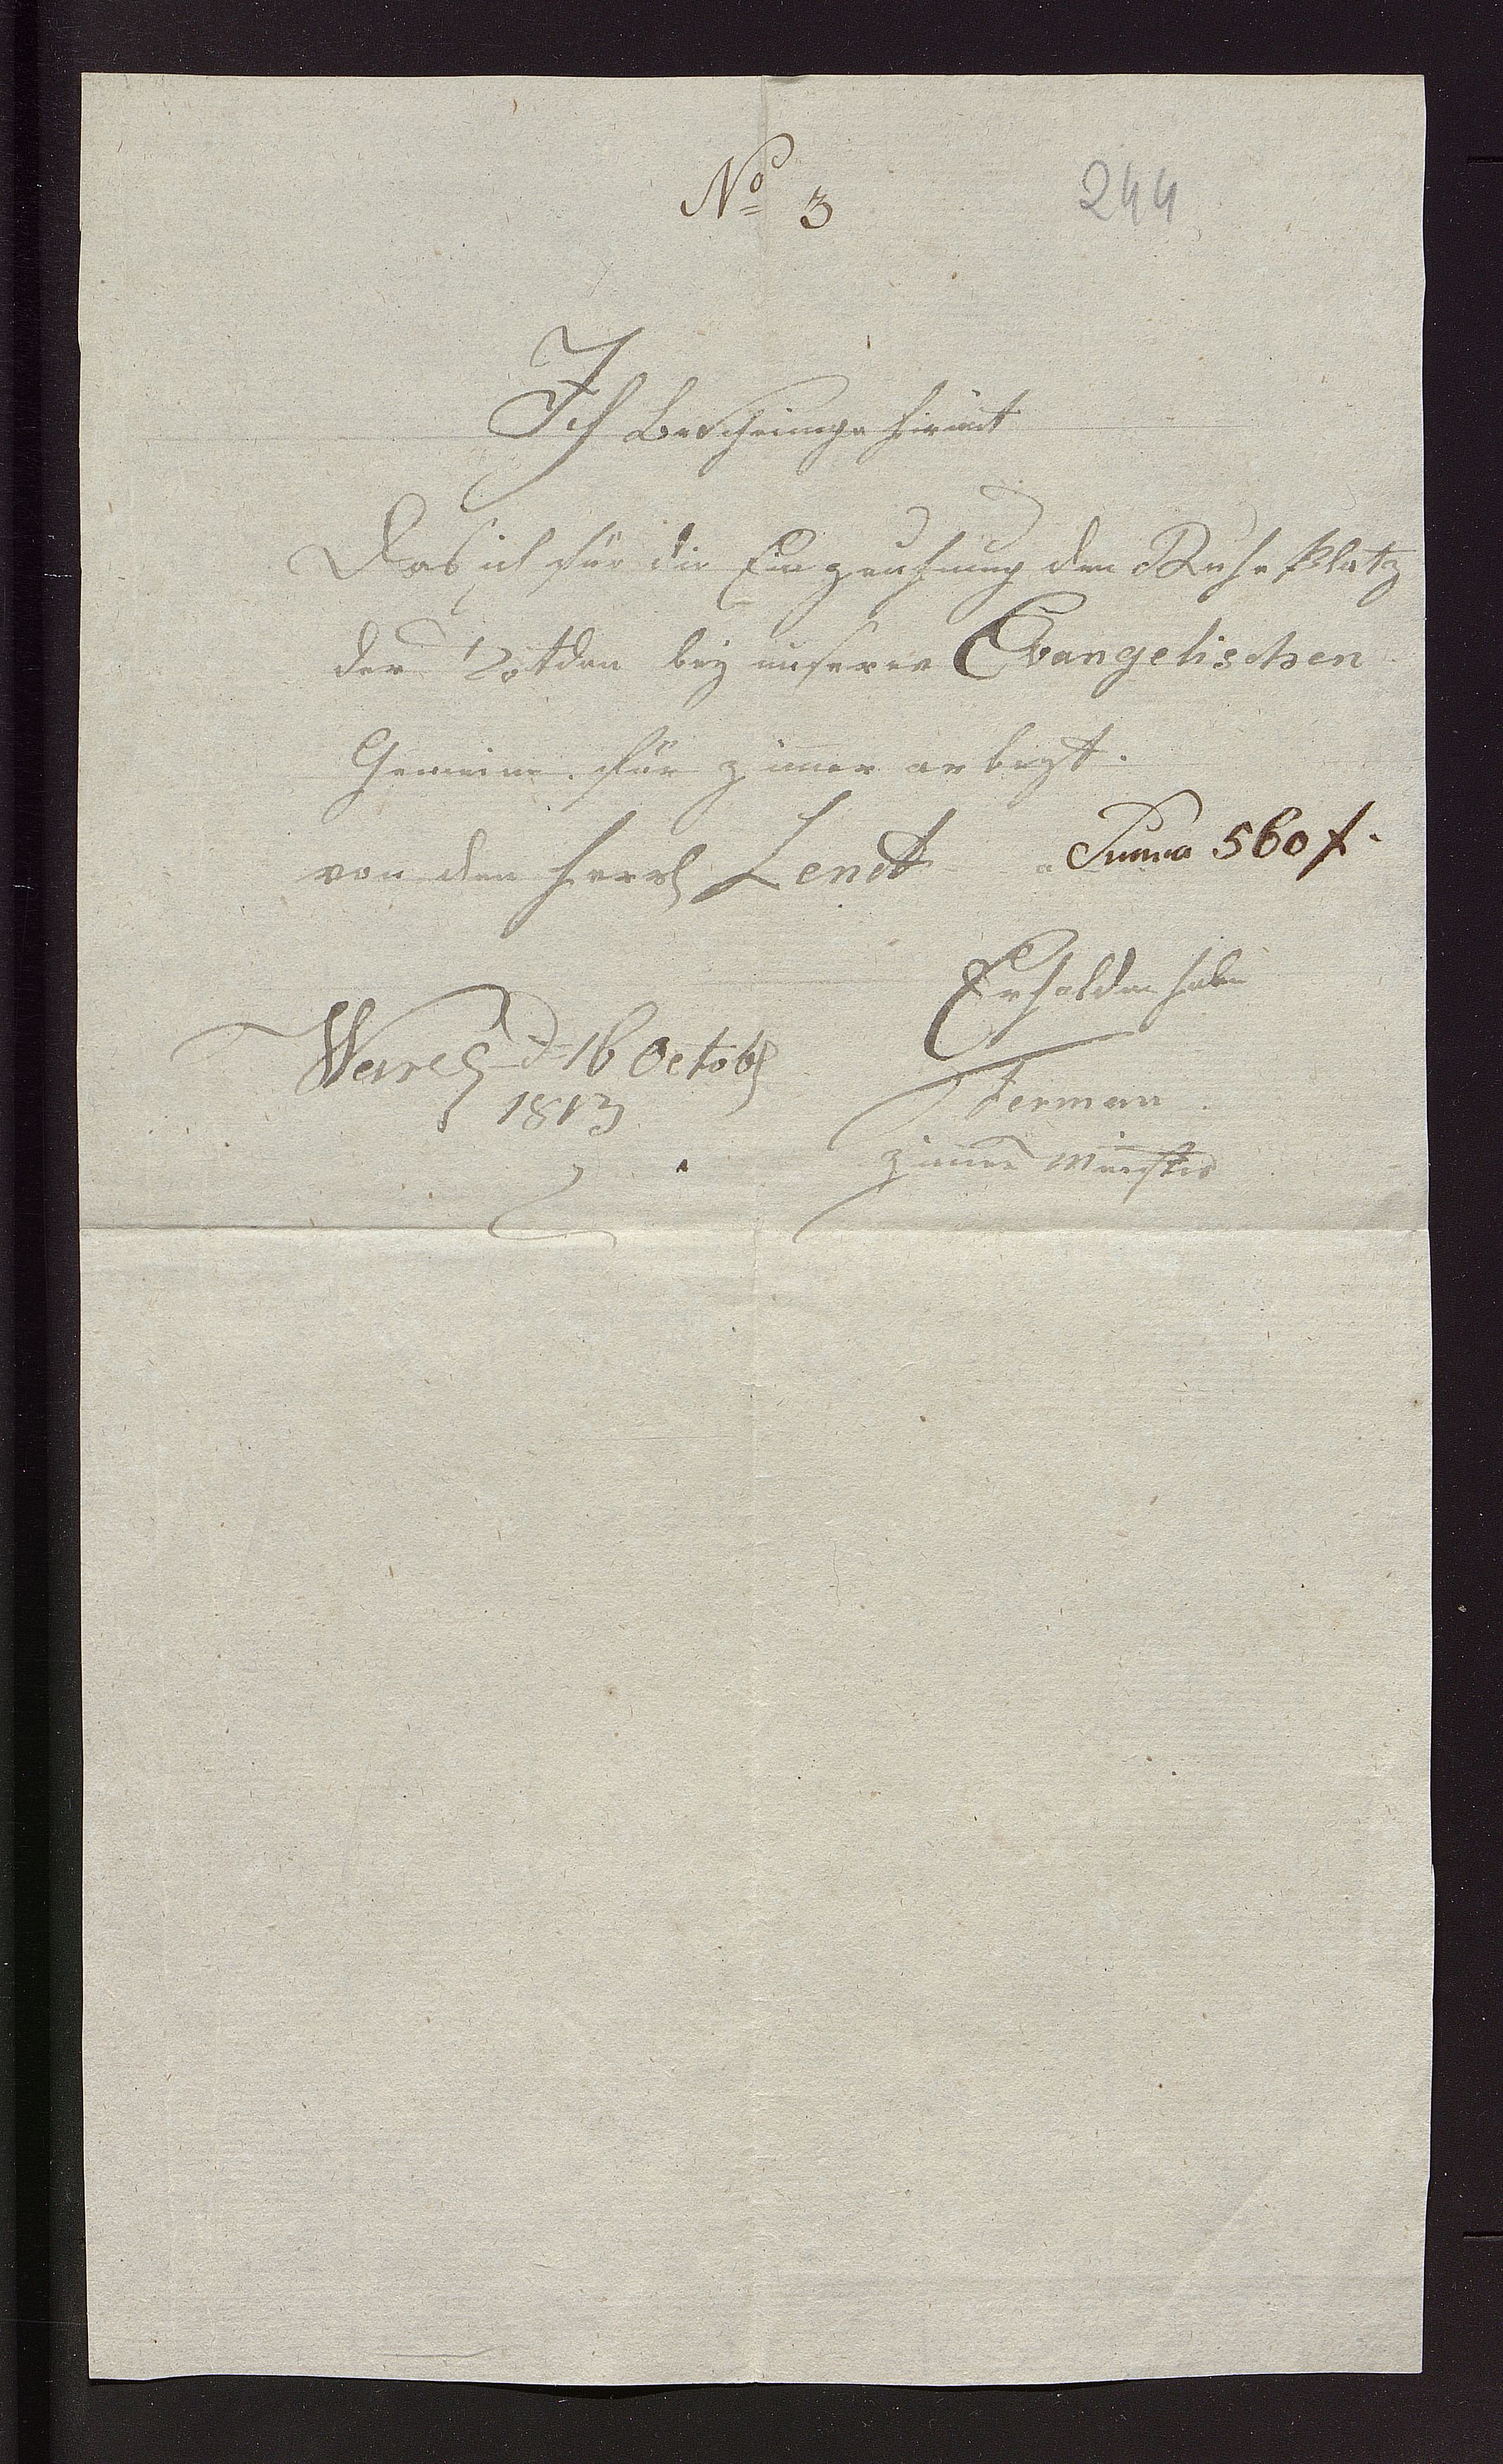 No 3
244
Ich Bescheinige hirmit
Das ich für die Einzeuhnung den Ruhe Platz
der Todten bey unserer Evangelischen
Gemeine. für zimer arbeyt.
von den herrn Lendt a Summa 560 f.
Erhalden habe
d 16 Octobr
1813
zimer Meister